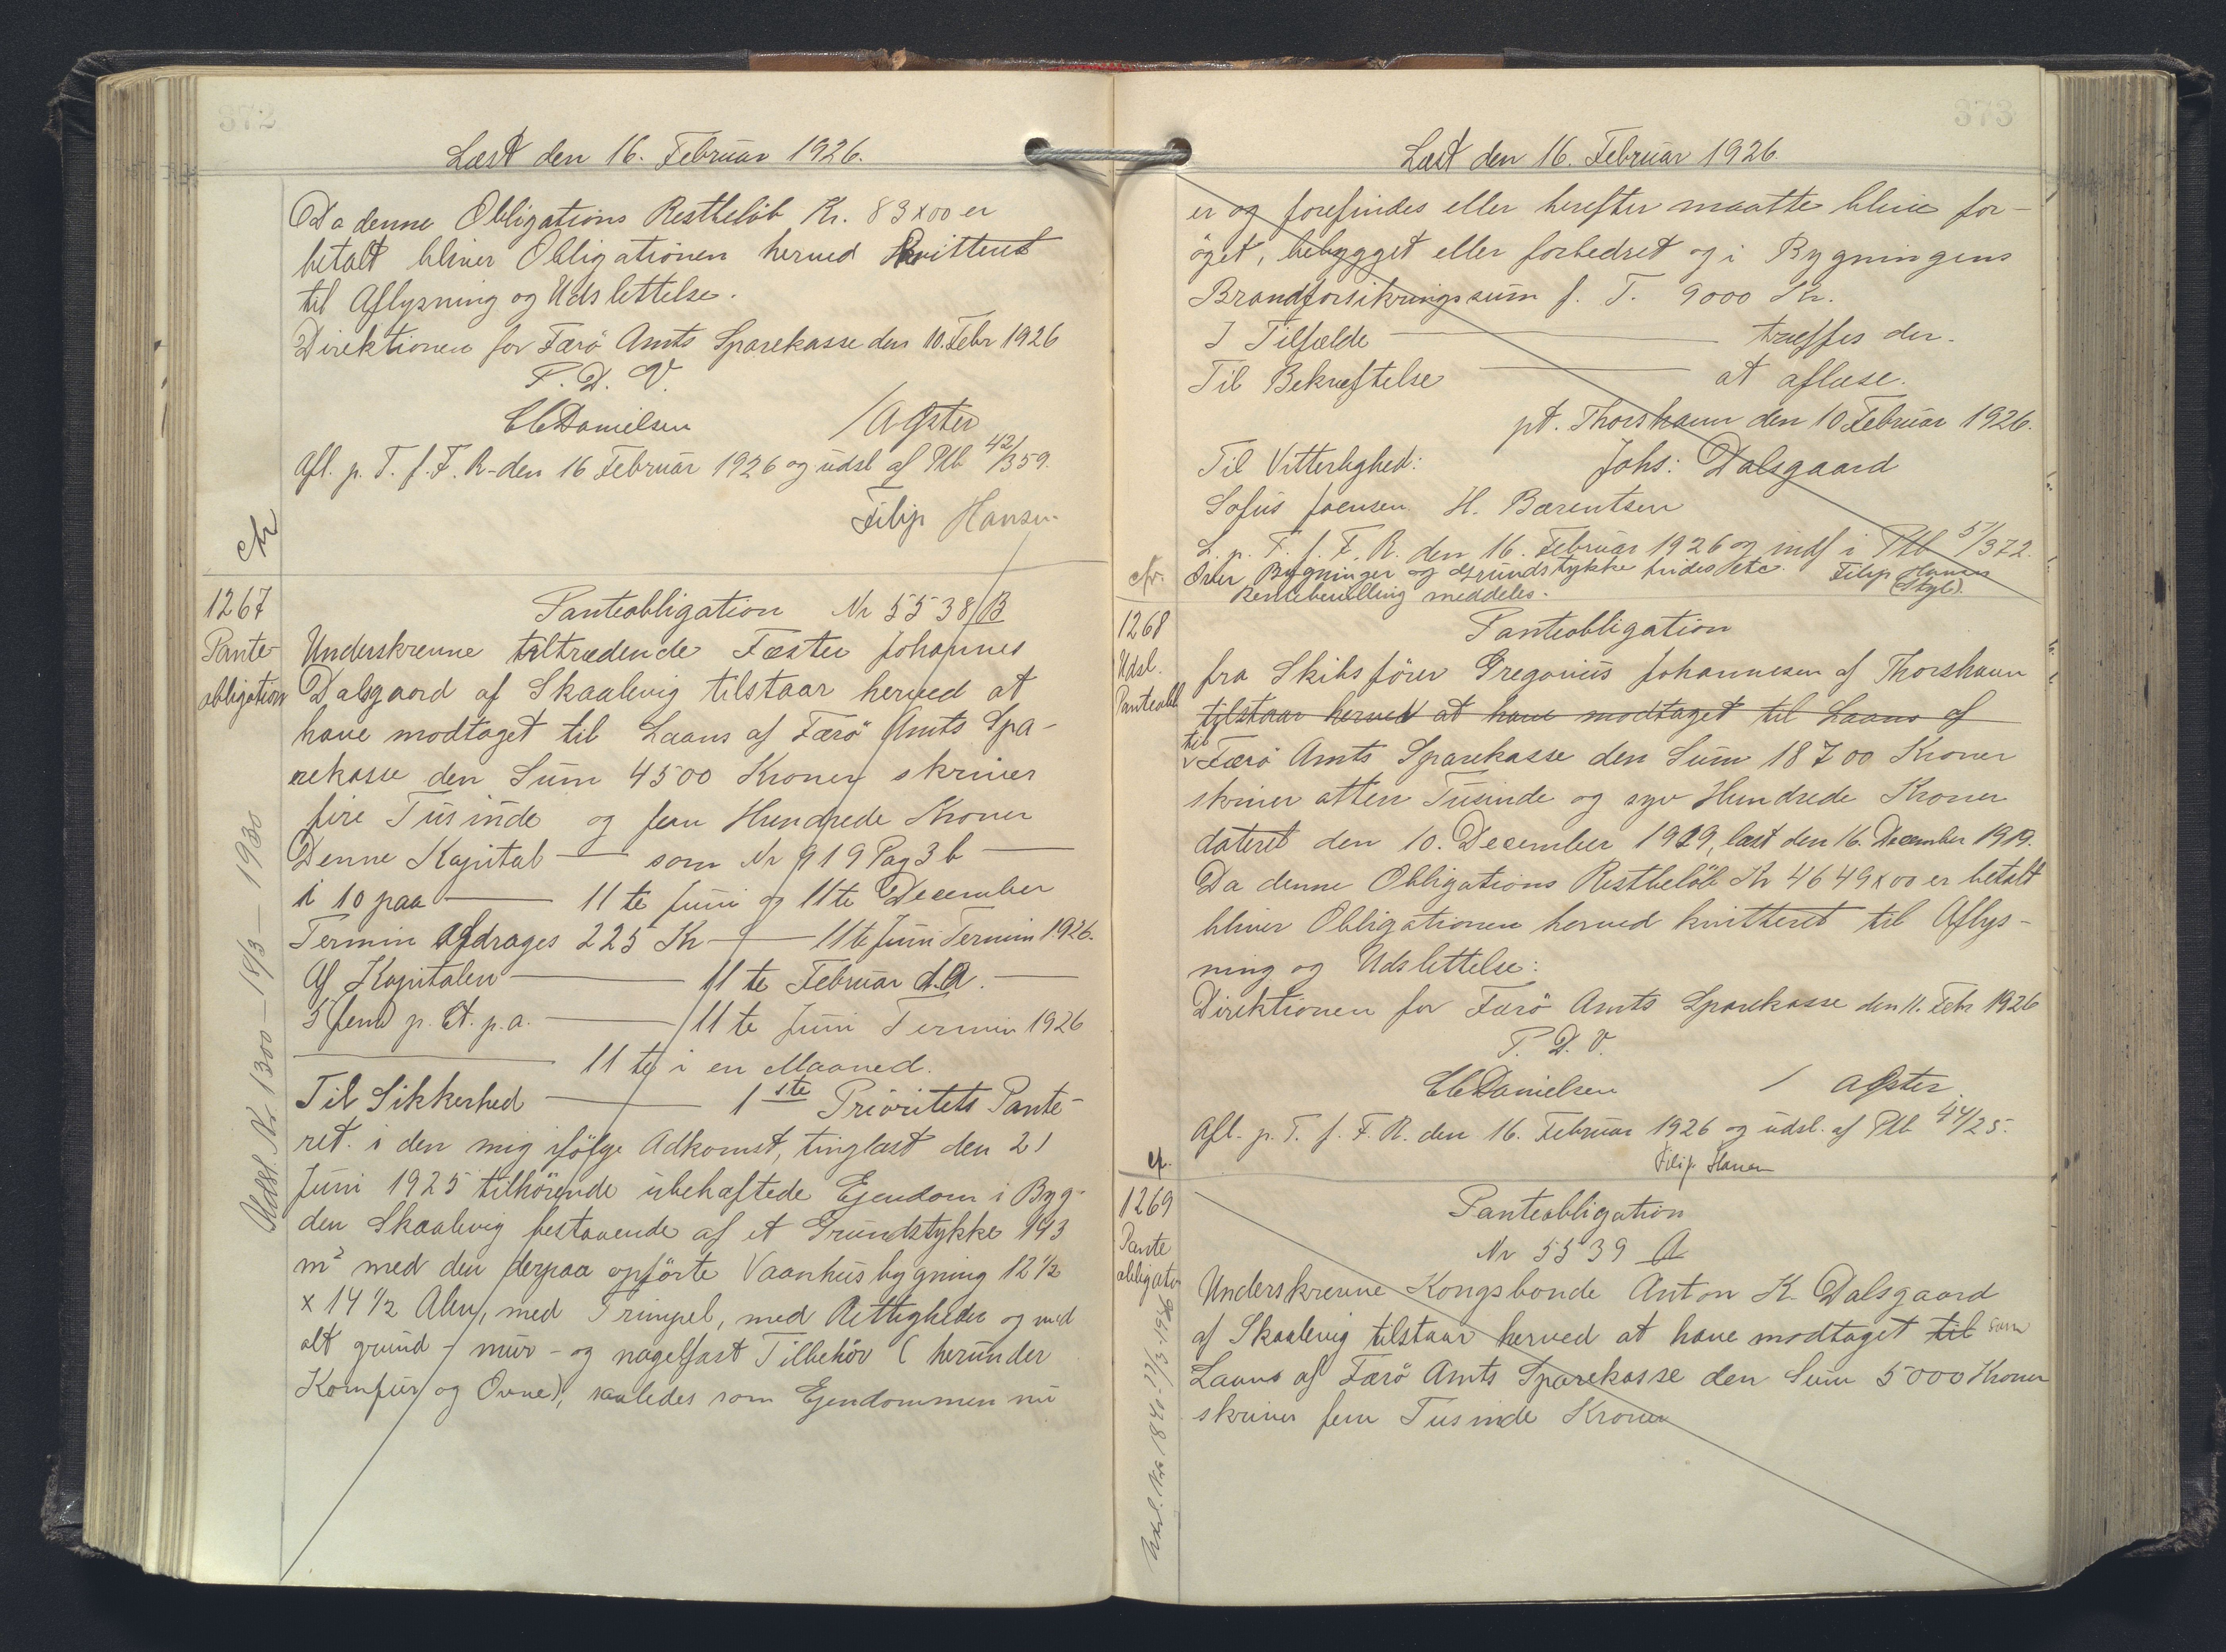 372
Læst den 16. Februar 1926.
Da denne Obligations Restbeløb Kr. 83x00 er
betalt bliver Obligationen herved kvitteret
til Aflysning og Udslettelse.
Direktionen for Færö Amts Sparekasse den 10. Febr 1926
P. D. V.
CCDanielsen / AØster
Afl. p. T. f. F. R. den 16 Februar 1926 og udsl af Pb 42/359.
Filip Hansen
cfr
1267
Pante
obligation
Panteobligation Nr 5538 B
Underskrevne tiltrædende Fæster Johannes
Dalsgaard af Skaalevig tilstaar herved at
have modtaget til Laans af Færö Amts Spa-
rekasse den Sum 4500 Kroner skriver
fire Tusinde og fem Hundrede Kroner
Denne Kapital — som Nr 919 Pag 3 b —
i 10 paa — 11te Juni og 11te December
Termin afdrages 225 Kr — 11te Juni Termin 1926.
Af Kapitalen — 11te Februar d.A. —
5 (fem) p. Ct. p.a. — 11te Juni Termin 1926
— 11te i en Maaned.
Til Sikkerhed — 1ste Prioritets Pante-
ret i den mig ifölge Adkomst, tinglæst den 21
Juni 1925 tilhörende ubehæftede Ejendom i Byg-
den Skaalevig bestaaende af et Grundstykke 193
m² med den derpaa opförte Vaanhusbygning 12½
x 14½ Alen, med Trimpel, med Rettigheder og med
alt grund- mur- og nagelfast Tilbehör (herunder
Komfur og Ovne), saaledes som Ejendommen nu
Udsl. Nr. 1300 — 18/3 — 1930
373
Læst den 16. Februar 1926.
er og forefindes eller herefter maatte blive for-
öget, bebygget eller forbedret og i Bygningens
Brandforsikringssum f. T. 9000 Kr.
I Tilfælde — træffes der.
Til Bekræftelse — at aflæse.
pt. Thorshavn den 10 Februar 1926.
Til Vitterlighed: Johs: Dalsgaard
Sofus Joensen H. Barentsen
L. p. T. f. F. R. den 16. Februar 1926 og indf i Pb 51/372.
Over Bygninger og Grundstykke findes etc. Filip Hansen
Rentebevilling meddeles. (Styl).
cfr.
1268
Udsl.
Panteobl
Panteobligation
fra Skibsförer Gregorius Johannesen af Thorshavn
tilstaar herved at have modtaget til Laans af
til
Færö Amts Sparekasse den Sum 18700 Kroner
skriver atten Tusinde og syv Hundrede Kroner
dateret den 10. December 1919, læst den 16. December 1919.
Da denne Obligations Restbeløb Kr 4649x00 er betalt
bliver Obligationen herved kvitteret til Aflys-
ning og Udslettelse:
Direktionen for Færö Amts Sparekasse den 11. Febr 1926
P. D. V.
CCDanielsen / AØster
Afl. p. T. f. F. R. den 16. Februar 1926 og udsl. af Pb 44/25.
Filip Hansen
cf.
1269
Pante
obligation
Panteobligation
Nr 5539 A
Underskrevne Kongsbonde Anton K. Dalsgaard
af Skaalevig tilstaar herved at have modtaget til som
Laans af Færö Amts Sparekasse den Sum 5000 Kroner
skriver fem Tusinde Kroner